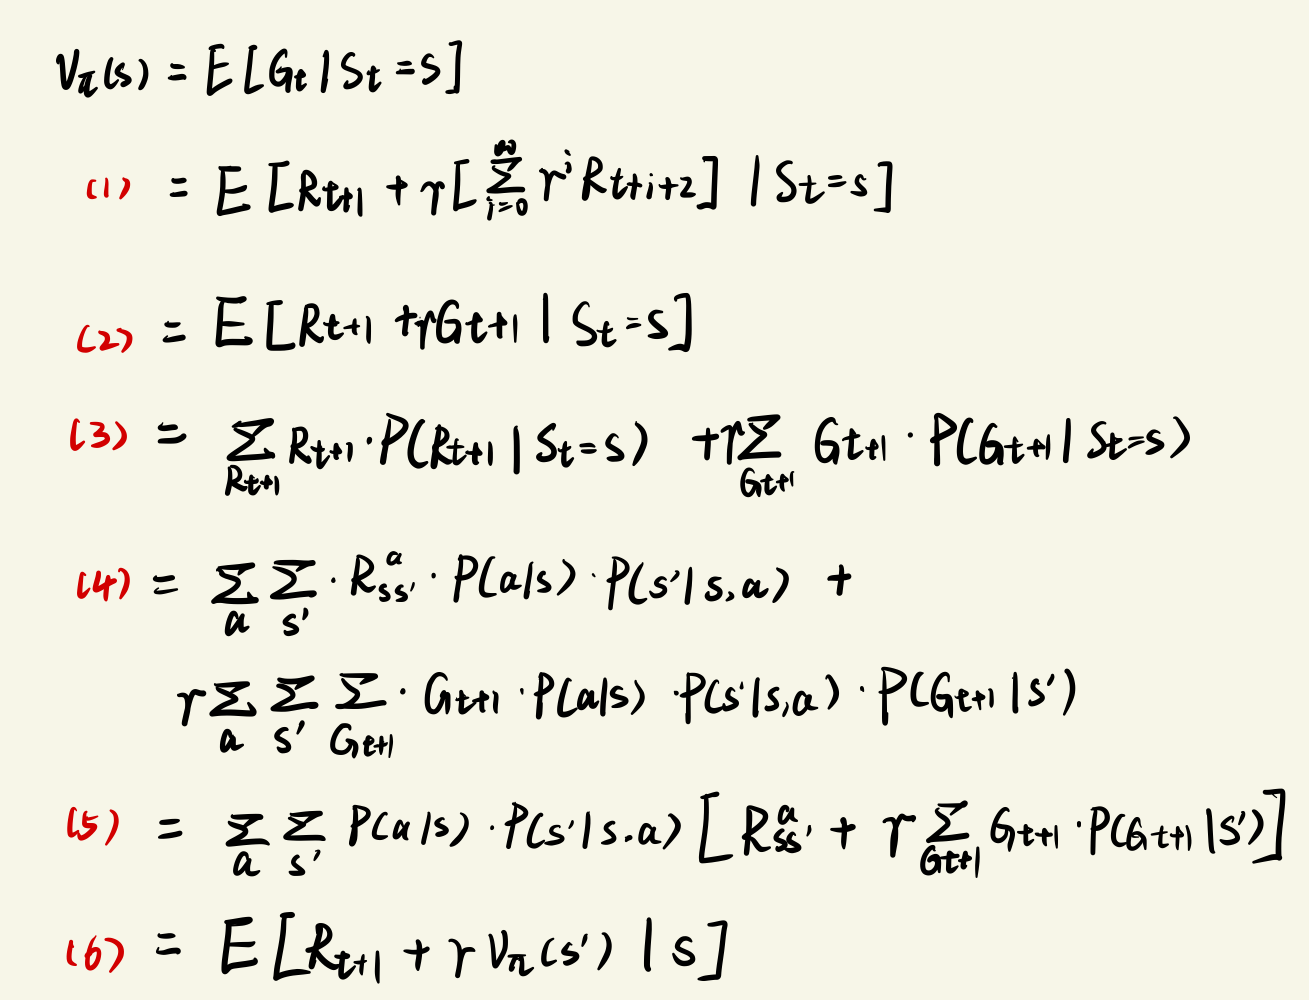 V_π(s) = E[G_t | S_t = s]
(1) = E[R_{t+1} + r[∑_{i=0}^{∞} r^i R_{t+i+2}] | S_t = s]
(2) = E[R_{t+1} + rG_{t+1} | S_t = s]
(3) = ∑_{R_{t+1}} R_{t+1} · P(R_{t+1} | S_t = s) + r∑_{G_{t+1}} G_{t+1} · P(G_{t+1} | S_t = s)
(4) = ∑_a ∑_{s'} · R_{ss'}^a · P(a|s) · P(s'|s,a) +
r∑_a ∑_{s'} ∑_{G_{t+1}} · G_{t+1} · P(a|s) · P(s'|s,a) · P(G_{t+1} | s')
(5) = ∑_a ∑_{s'} P(a|s) · P(s'|s.a) [R_{ss'}^a + r∑_{G_{t+1}} G_{t+1} · P(G_{t+1} | s')]
(6) = E[R_{t+1} + r V_π(s') | s]